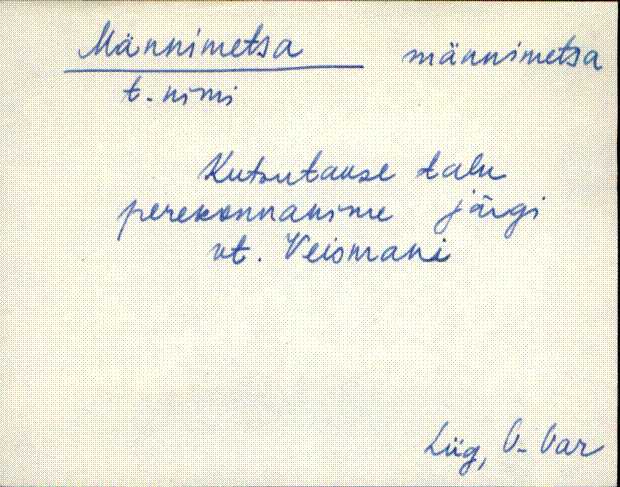 Männimetsa männimetsa
t. nimi
Kutsutakse talu
perekonnanime järgi
vt. Veismani
Lüg, V-Var